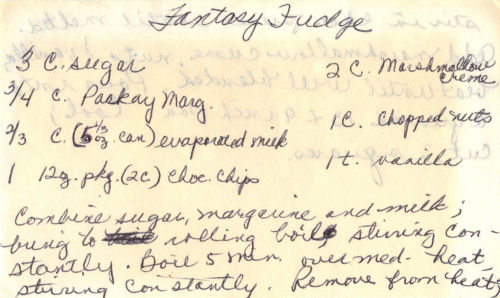 Fantasy Fudge
3 C. sugar
3/4 C. Parkay Marg.
2/3 C. (5 1/3 oz. can) evaporated milk
1 12oz. pkg. (2c.) choc. chips
2 C. Marshmallow creme
1 C. chopped nuts
1 t. vanilla
Combine sugar, margerine and milk;
bring to rolling boil, stirring con-
stantly. Boil 5 min. over med. heat,
stirring constantly. Remove from heat;